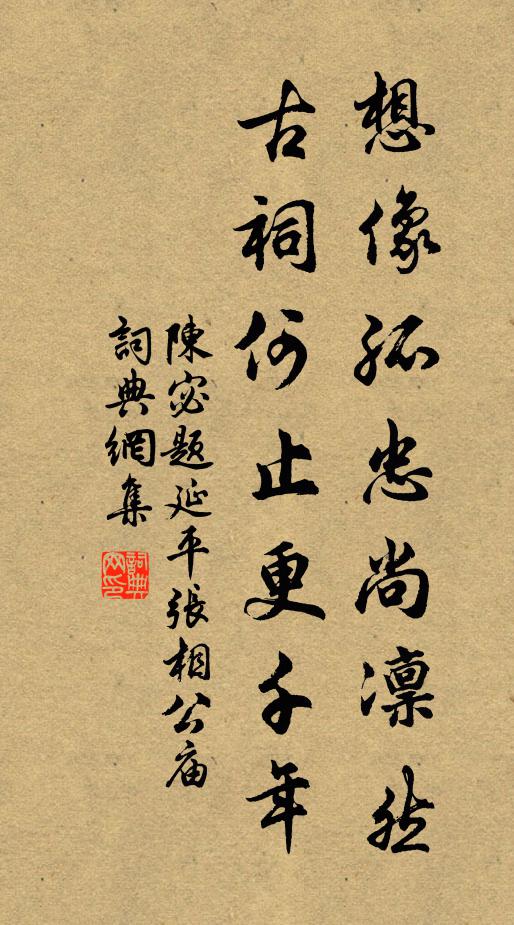 想像孤忠尚凜然
古祠何止更千年
陳宓題延平張相公庙
詞典網集
詞典網印